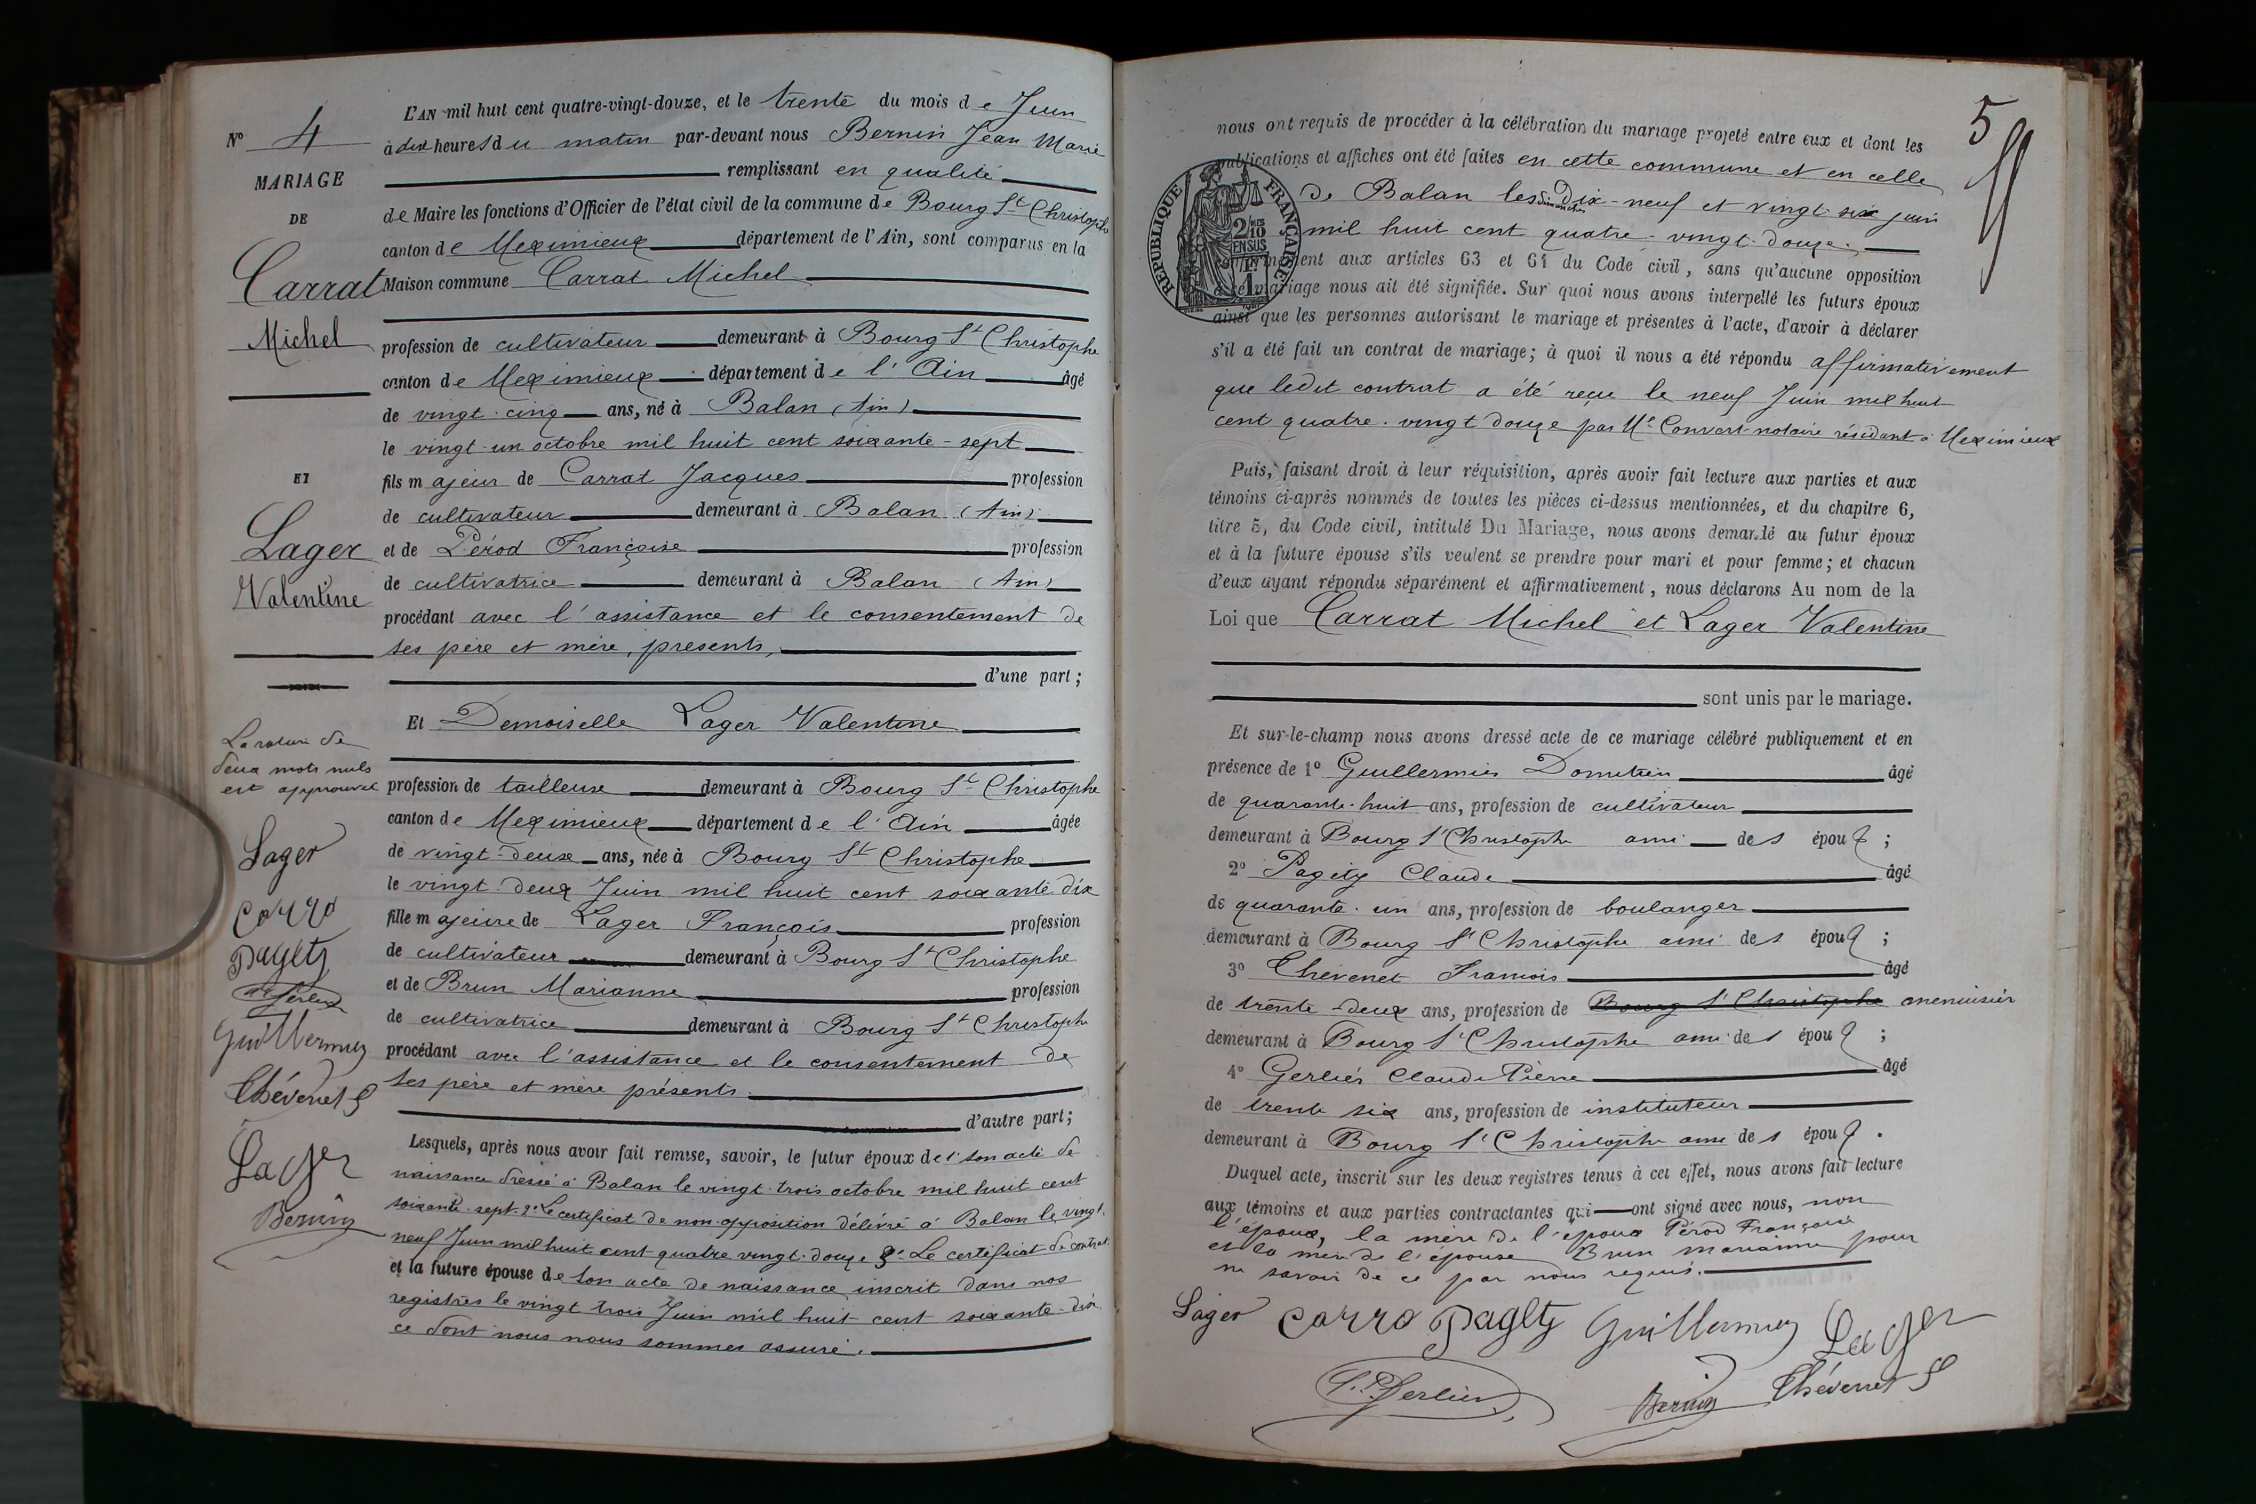 L'AN mil huit cent quatre-vingt-douze, et le trente du mois de Juin
à dix heures du matin par-devant nous Bernin Jean Marie
remplissant en qualité
de Maire les fonctions d'Officier de l'état civil de la commune de Bourg St Christophe
canton de Meximieux département de l'Ain, sont comparus en la
Maison commune Carrat Michel
profession de cultivateur demeurant à Bourg St Christophe
canton de Meximieux département de l'Ain âgé
de vingt-cinq ans, né à Balan (Ain)
le vingt-un octobre mil huit cent soixante-sept
fils majeur de Carrat Jacques profession
de cultivateur demeurant à Balan (Ain)
et de Pérod Françoise profession
de cultivatrice demeurant à Balan (Ain)
procédant avec l'assistance et le consentement de
ses père et mère, présents,
d'une part;
Et Demoiselle Lager Valentine
profession de tailleuse demeurant à Bourg St Christophe
canton de Meximieux département de l'Ain âgée
de vingt-deux ans, née à Bourg St Christophe
le vingt deux Juin mil huit cent soixante dix
fille majeure de Lager François profession
de cultivateur demeurant à Bourg St Christophe
et de Brun Marianne profession
de cultivatrice demeurant à Bourg St Christophe
procédant avec l'assistance et le consentement de
ses père et mère présents.
d'autre part;
Lesquels, après nous avoir fait remise, savoir, le futur époux de 1° son acte de
naissance dressé à Balan le vingt-trois octobre mil huit cent
soixante-sept. 2° Le certificat de non-opposition délivré à Balan le vingt-
neuf Juin mil huit cent quatre vingt-douze 3° Le certificat de contrat
et la future épouse de son acte de naissance inscrit dans nos
registres le vingt trois Juin mil huit cent soixante-dix
ce dont nous nous sommes assuré.
N° 4
MARIAGE
DE
Carrat
Michel
ET
Lager
Valentine
La rature de
deux mots nuls
est approuvée
Lager
Carra
Pagety
Gerlier
Guillermin
Thévenet F
Lager
Bernin
5
nous ont requis de procéder à la célébration du mariage projeté entre eux et dont les
publications et affiches ont été faites en cette commune et en celle
de Balan les dimanches Dix-neuf et vingt-six juin
mil huit cent quatre-vingt-douze.
conformément aux articles 63 et 64 du Code civil, sans qu'aucune opposition
à ce mariage nous ait été signifiée. Sur quoi nous avons interpellé les futurs époux
ainsi que les personnes autorisant le mariage et présentes à l'acte, d'avoir à déclarer
s'il a été fait un contrat de mariage; à quoi il nous a été répondu affirmativement
que ledit contrat a été reçu le neuf Juin mil huit
cent quatre-vingt douze par Me Convert notaire résidant à Meximieux
Puis, faisant droit à leur réquisition, après avoir fait lecture aux parties et aux
témoins ci-après nommés de toutes les pièces ci-dessus mentionnées, et du chapitre 6,
titre 5, du Code civil, intitulé Du Mariage, nous avons demandé au futur époux
et à la future épouse s'ils veulent se prendre pour mari et pour femme; et chacun
d'eux ayant répondu séparément et affirmativement, nous déclarons Au nom de la
Loi que Carrat Michel et Lager Valentine
sont unis par le mariage.
Et sur-le-champ nous avons dressé acte de ce mariage célébré publiquement et en
présence de 1° Guillermin Domitien âgé
de quarante-huit ans, profession de cultivateur
demeurant à Bourg St Christophe ami des époux;
2° Pagety Claude âgé
de quarante-un ans, profession de boulanger
demeurant à Bourg St Christophe ami des époux;
3° Thévenet Francois âgé
de trente-deux ans, profession de Bourg St Christophe menuisier
demeurant à Bourg St Christophe ami des époux;
4° Gerlier Claude Pierre âgé
de trente six ans, profession de instituteur
demeurant à Bourg St Christophe ami des époux.
Duquel acte, inscrit sur les deux registres tenus à cet effet, nous avons fait lecture
aux témoins et aux parties contractantes qui ont signé avec nous, non
l'époux, la mère de l'époux Pérod Françoise
et la mère de l'épouse Brun Marianne pour
ne savoir de ce par nous requis.
Lager Carra Pagety Guillermin Lager
Gerlier Bernin Thévenet F
RÉPUBLIQUE FRANÇAISE
2/10 EN SUS
1